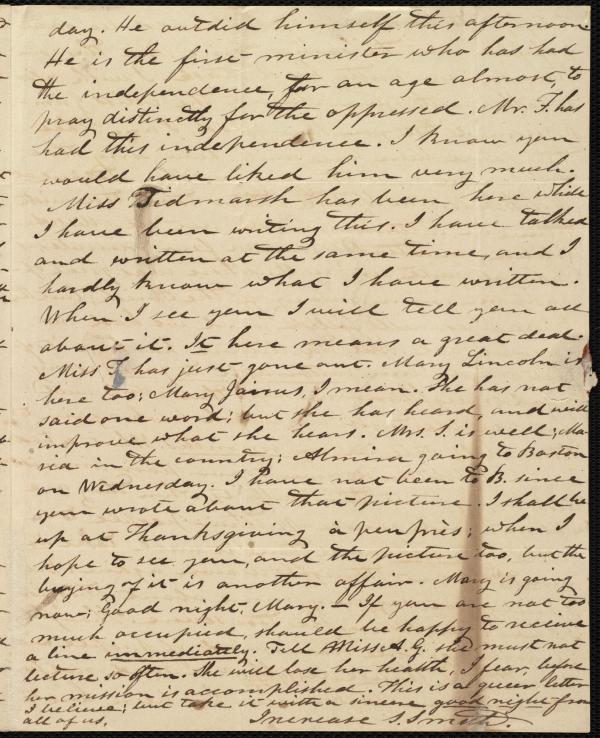 day. He outdid himself this afternoon
He is the first minister who has had
the independence, for an age almost, to
pray distinctly for the oppressed. Mr. F. has
had this independence. I know you
would have liked him very much.
Miss Tidmarsh has been here while
I have been writing this. I have talked
and written at the same time, and I
hardly know what I have written.
When I see you I will tell you all
about it. It here means a great deal.
Miss T. has just gone out. Mary Lincoln is
here too; Mary Jairus, I mean. She has not
said one word; but she has heard, and will
improve what she hears. Mrs. S. is well; Ma-
ria in the country; Almira going to Boston
on Wednesday. I have not been to B. since
you wrote about that picture. I shall be
up at Thanksgiving à peu près; when I
hope to see you, and the picture too, but the
buying of it is another affair. Mary is going
now; Good night, Mary. — If you are not too
much occupied, should be happy to receive
a line immediately. Tell Miss A. G. she must not
lecture so often. She will lose her health, I fear, before
her mission is accomplished. This is a queer letter
I believe; but take it with a sincere good night from
all of us.
Increase S. Smith.